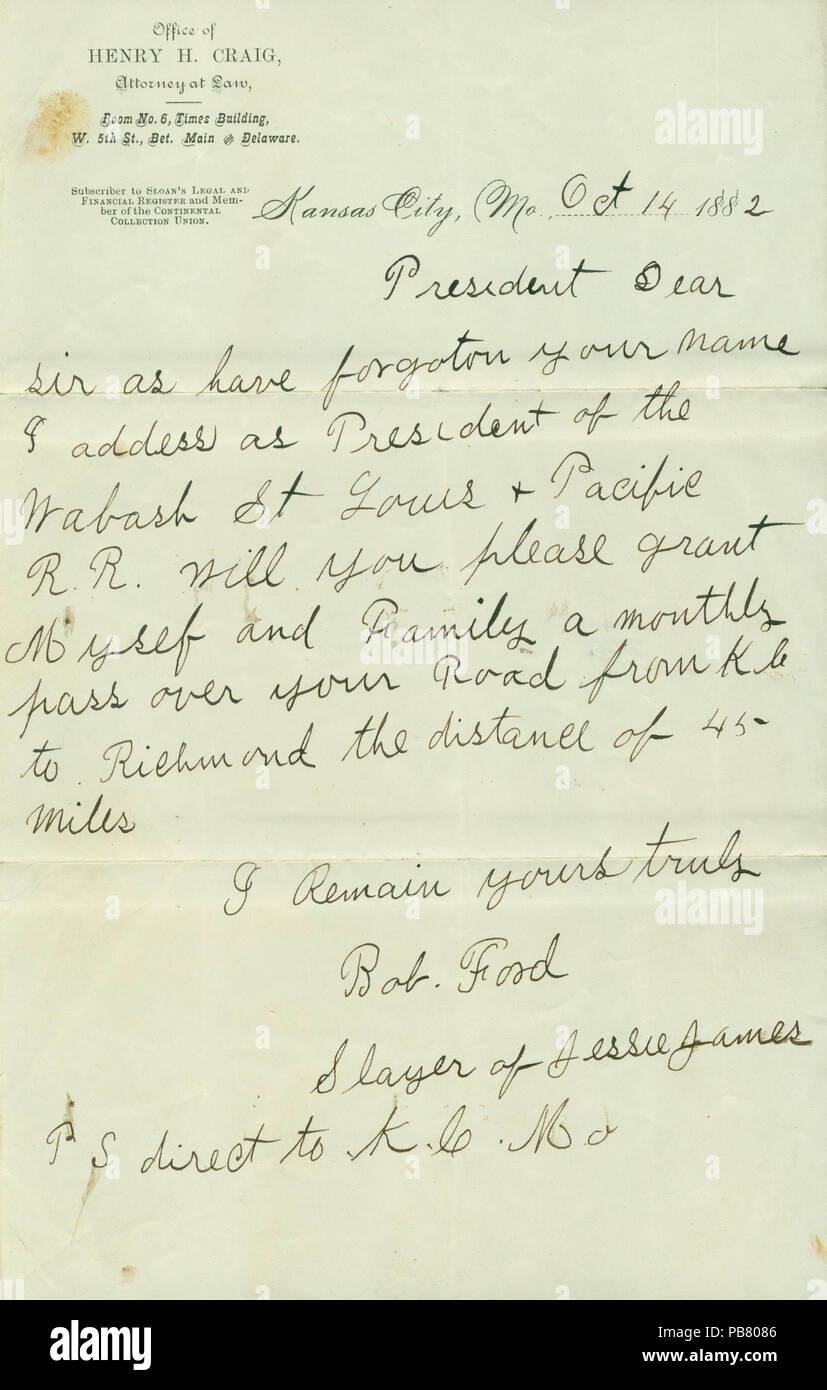 Office of
HENRY H. CRAIG,
Attorney at Law,
Room No. 6, Times Building,
W. 5th St., Bet. Main & Delaware.
Subscriber to SLOAN'S LEGAL AND
FINANCIAL REGISTER and Mem-
ber of the CONTINENTAL
COLLECTION UNION.
Kansas City, Mo., Oct 14 1882
President Dear
sir as have forgoton your name
I addess as President of the
Wabash St Louis + Pacific
R. R. will you please grant
Mysef and Family a monthly
pass over your Road from K C
to Richmond the distance of 45
miles
I Remain yours truly
Bob. Ford
Slayer of Jessie James
P S direct to K. C. Mo
alamy
alamy stock photo
PB8086
www.alamy.com